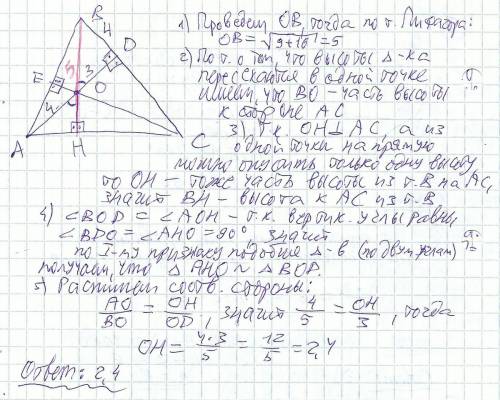 B
4
D
E
5
3
O
4
A
H
C
1) Проведем OB, тогда по т. Пифагора:
OB = √9+16 = 5
2) По т. о том, что высоты Δ-ка
пересекаются в одной точке
имеем, что BO - часть высоты
к стороне AC
3) т.к. OH⊥AC, а из
одной точки на прямую
можно опустить только одну высоту,
то OH - тоже часть высоты из т. B на AC,
значит BH - высота к AC из т. B
4) ∠BOD = ∠AOH - т.к. вертик. углы равны
∠BDO = ∠AHO = 90°, значит
по I-му признаку подобия Δ-в (по двум углам)
получаем, что Δ AHO ~ Δ BOD.
5) Распишем соотв. стороны:
AO/BO = OH/OD, значит 4/5 = OH/3, тогда
OH = 4·3/5 = 12/5 = 2,4
Ответ: 2,4